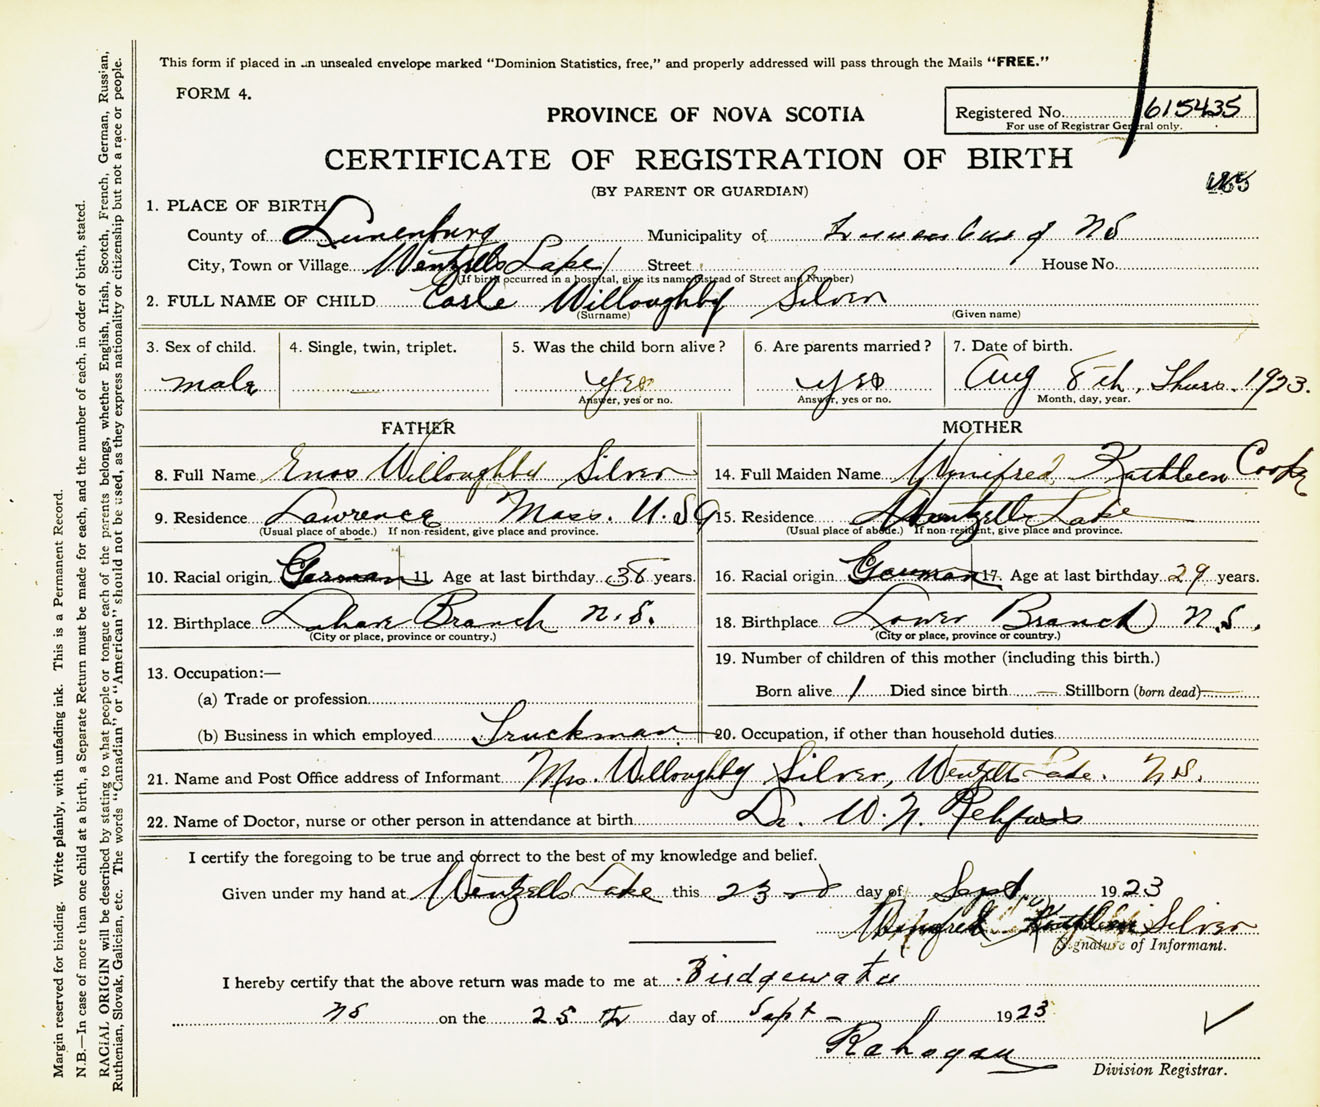 This form if placed in an unsealed envelope marked "Dominion Statistics, free," and properly addressed will pass through the Mails "FREE."
FORM 4.
PROVINCE OF NOVA SCOTIA
Registered No. 615435
For use of Registrar General only.
CERTIFICATE OF REGISTRATION OF BIRTH
(BY PARENT OR GUARDIAN)
1. PLACE OF BIRTH
County of Lunenburg Municipality of Lunenburg NS
City, Town or Village Wentzells Lake Street House No.
(If birth occurred in a hospital, give its name instead of Street and Number)
2. FULL NAME OF CHILD Earle Willoughby Silver
(Surname) (Given name)
3. Sex of child. 4. Single, twin, triplet. 5. Was the child born alive? 6. Are parents married? 7. Date of birth.
male yes yes Aug 8th, Thurs. 1923.
Answer, yes or no. Answer, yes or no. Month, day, year.
FATHER MOTHER
8. Full Name Enos Willoughby Silver 14. Full Maiden Name Winifred Kathleen Cook
9. Residence Lawrence Mass. U.S.A 15. Residence Wentzells Lake
(Usual place of abode.) If non-resident, give place and province. (Usual place of abode.) If non-resident, give place and province.
10. Racial origin German 11. Age at last birthday 38 years. 16. Racial origin German 17. Age at last birthday 29 years.
12. Birthplace Lahave Branch N.S. 18. Birthplace Lower Branch N.S.
(City or place, province or country.) (City or place, province or country.)
13. Occupation:— 19. Number of children of this mother (including this birth.)
(a) Trade or profession Born alive 1 Died since birth — Stillborn (born dead) —
(b) Business in which employed Truckman 20. Occupation, if other than household duties
21. Name and Post Office address of Informant Mrs. Willoughby Silver, Wentzells Lake. N.S.
22. Name of Doctor, nurse or other person in attendance at birth Dr. W. N. Rehfuss
I certify the foregoing to be true and correct to the best of my knowledge and belief.
Given under my hand at Wentzells Lake this 23rd day of Sept. 1923
Winifred Kathleen Silver
Signature of Informant.
I hereby certify that the above return was made to me at Bridgewater
NS on the 25th day of Sept - 1923
Division Registrar.
Margin reserved for binding. Write plainly, with unfading ink. This is a Permanent Record.
N.B.—In case of more than one child at a birth, a Separate Return must be made for each, and the number of each, in order of birth, stated.
RACIAL ORIGIN will be described by stating to what people or tongue each of the parents belongs, whether English, Irish, Scotch, French, German, Russian,
Ruthenian, Slovak, Galician, etc. The words "Canadian" or "American" should not be used, as they express nationality or citizenship but not a race or people.